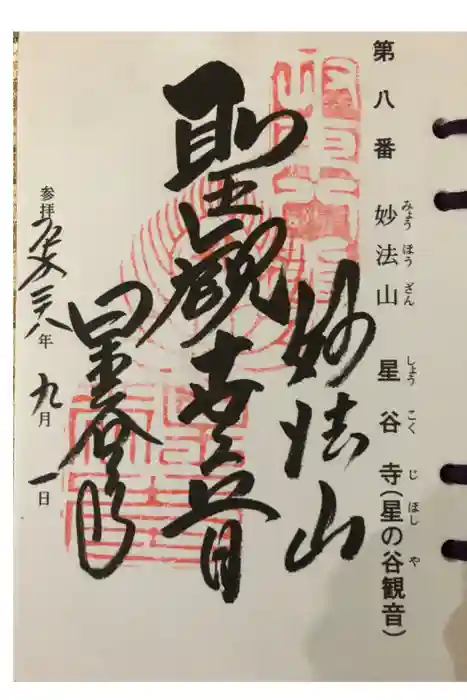 第八番 妙法山 星谷寺(星の谷観音)
みょう ほう ざん しょう こく じ ほし や
妙法山
聖観世音
星谷寺
参拝 年 九月 一日